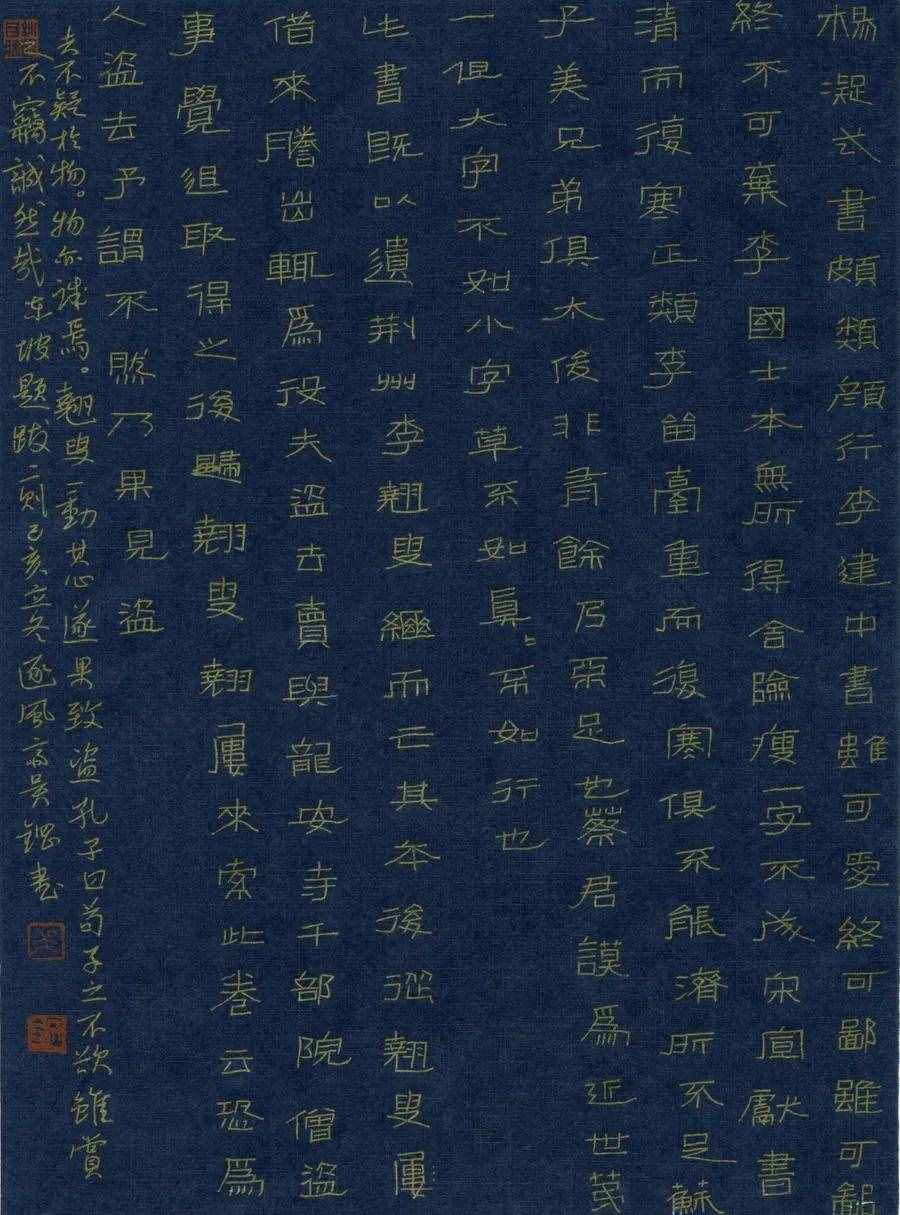 楊凝式書頗類顏行李建中書雖可愛終可鄙雖可鄙
終不可棄李國士本無所得舍險瘦一字不成宋宣獻書
清而復寒正類李留臺重而復寒俱不能濟所不足蘇
子美兄弟俱太俊非有餘乃不足也蔡君謨為近世第
一但大字不如小字草不如真〻不如行也
此書既以遺荊州李翹叟繼而亡其本後從翹叟屢
借來謄出輒為役夫盜去賣與龍安寺千部院僧盜
事覺追取得之後歸翹叟翹屢來索此卷云恐為
人盜去予謂不然乃果見盜
去不疑於物。物亦誠焉。翹叟一動其心遂果致盜孔子曰苟子之不欲雖賞
之不竊誠然哉東坡題跋二則己亥立冬逐風高吳鋼書